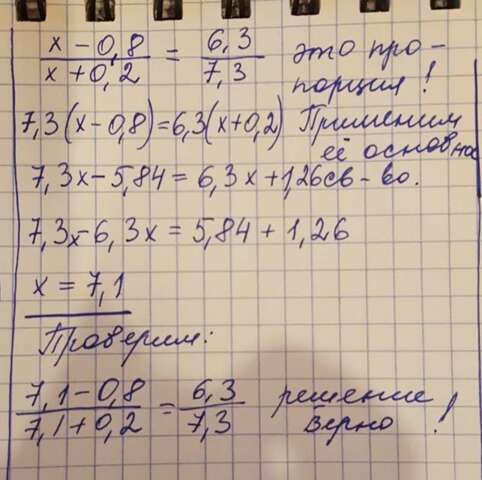 x − 0,8 / x + 0,2 = 6,3 / 7,3 это про-
порция!
7,3(x − 0,8) = 6,3(x + 0,2) Применим
её основное
7,3x − 5,84 = 6,3x + 1,26 св-во.
7,3x − 6,3x = 5,84 + 1,26
x = 7,1
Проверим:
7,1 − 0,8 / 7,1 + 0,2 = 6,3 / 7,3 решение
верно!